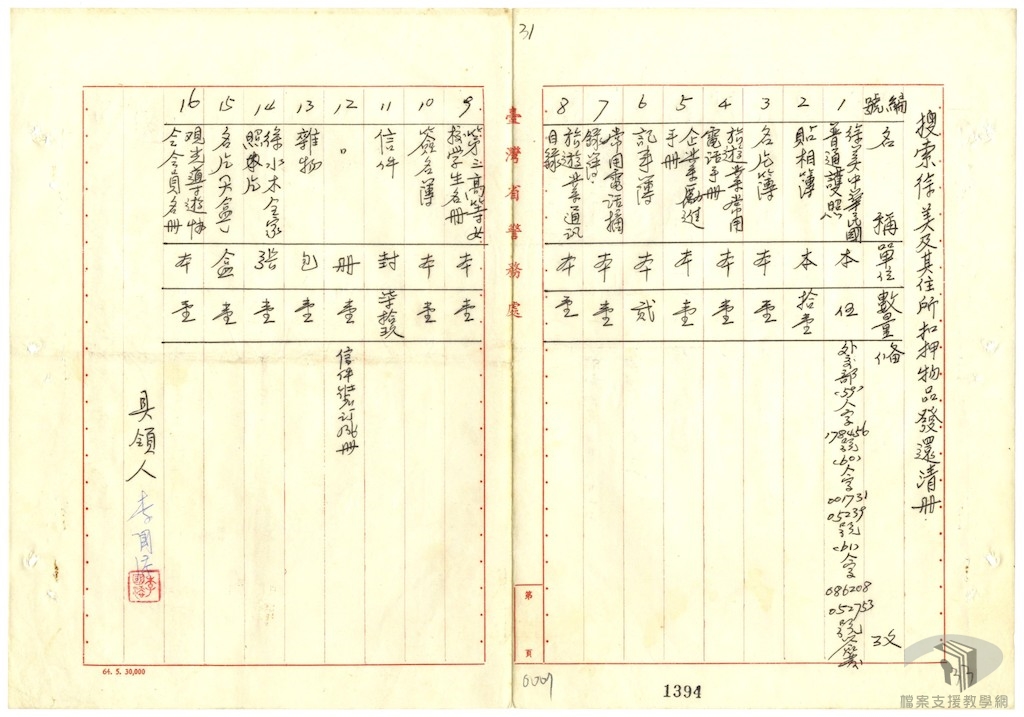 31
搜索徐美及其住所扣押物品發還清冊
編號 名稱 單位 數量 備攷
1 徐美中華民國普通護照 本 伍 外交部(59)人字178456號(60)人字001731 05239號(61)人字086208 052753號
2 貼相簿 本 拾壹
3 名片簿 本 壹
4 旅遊業常用電話手冊 本 壹
5 企業家勵進手冊 本 壹
6 記事簿 本 貳
7 常用電話摘錄簿 本 壹
8 旅遊業通訊目錄 本 壹
臺灣省警務處
第 頁
9 第三高等女校學生名冊 本 壹
10 簽名簿 本 壹
11 信件 封 柒拾玖
12 〃 冊 壹 信件裝訂成冊
13 雜物 包 壹
14 徐水木全家照片 張 壹
15 名片 盒 壹
16 觀光導遊協會會員名冊 本 壹
具領人 李
64. 5. 30,000
1394
檔案支援教學網